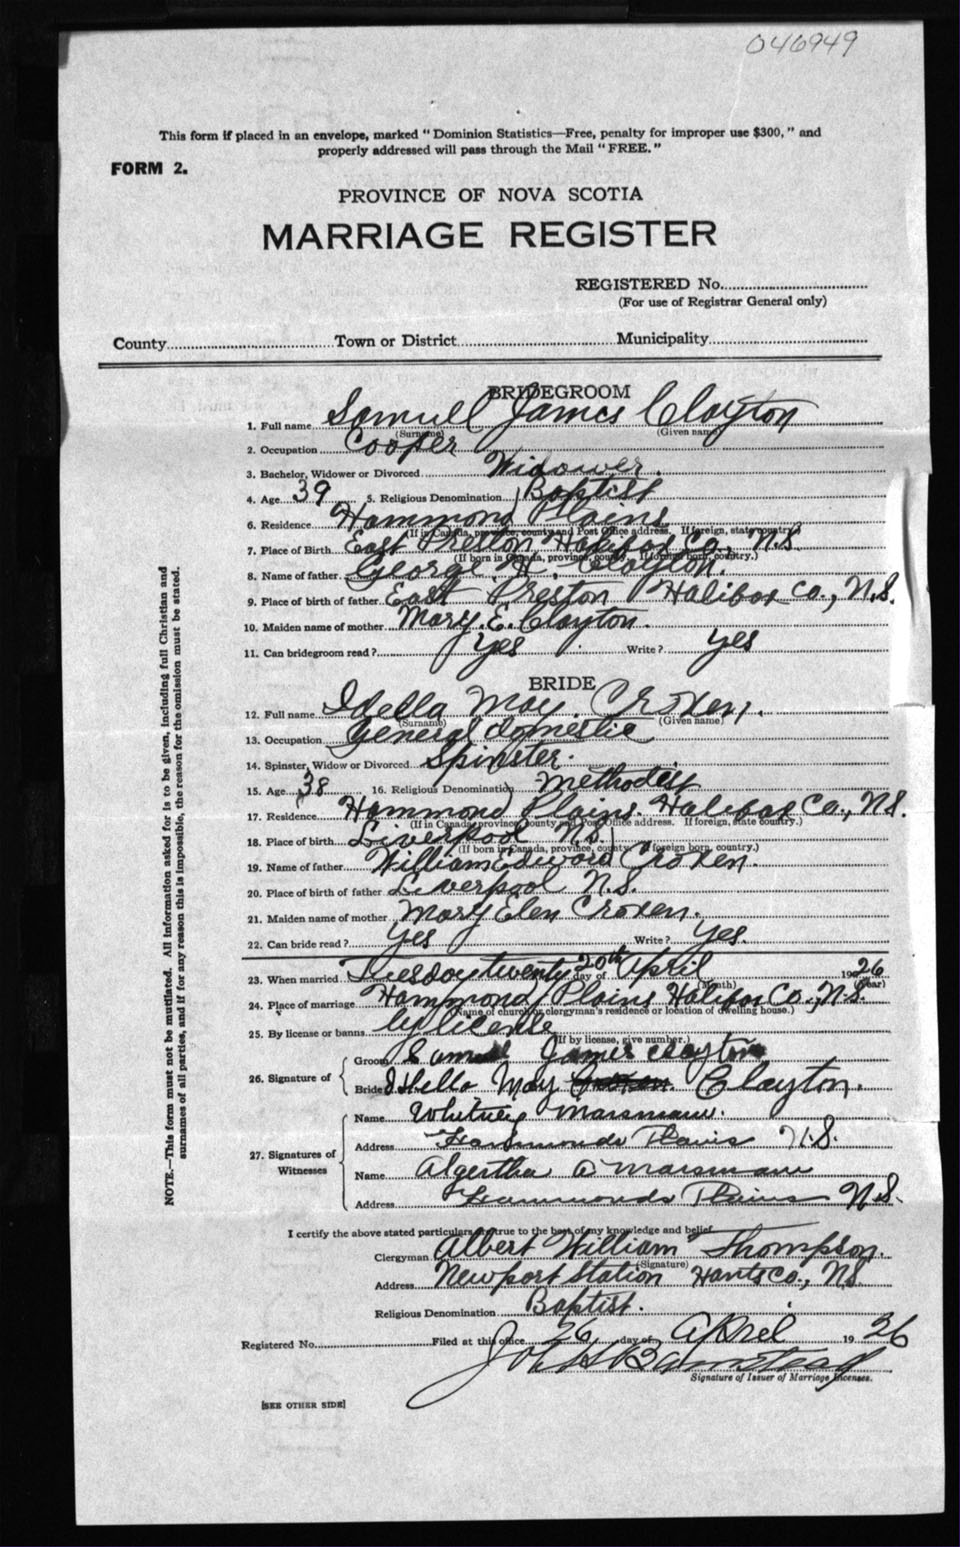 046949
This form if placed in an envelope, marked "Dominion Statistics—Free, penalty for improper use $300," and
properly addressed will pass through the Mail "FREE."
FORM 2.
PROVINCE OF NOVA SCOTIA
MARRIAGE REGISTER
REGISTERED No.
(For use of Registrar General only)
County Town or District Municipality
BRIDEGROOM
1. Full name Samuel James Clayton
(Surname) (Given name)
2. Occupation Cooper
3. Bachelor, Widower or Divorced Widower.
4. Age 39 5. Religious Denomination Baptist
6. Residence Hammond Plains
(If in Canada, province, county and Post Office address. If foreign, state country.)
7. Place of Birth East Preston Halifax Co., N.S.
(If born in Canada, province, county. If foreign born, country.)
8. Name of father George H. Clayton.
9. Place of birth of father East Preston Halifax Co., N.S.
10. Maiden name of mother Mary. E. Clayton.
11. Can bridegroom read? Yes Write? Yes
BRIDE
12. Full name Idella May Croxen.
(Surname) (Given name)
13. Occupation General domestic
14. Spinster, Widow or Divorced Spinster.
15. Age 38 16. Religious Denomination Methodist
17. Residence Hammond Plains. Halifax Co., N.S.
(If in Canada, province, county and Post Office address. If foreign, state country.)
18. Place of birth Liverpool N.S.
(If born in Canada, province, county. If foreign born, country.)
19. Name of father William Edward Croxen.
20. Place of birth of father Liverpool N.S.
21. Maiden name of mother Mary Elen Croxen.
22. Can bride read? Yes Write? Yes.
23. When married Tuesday twenty 20th day of April 1926
(Month) (Year)
24. Place of marriage Hammond Plains Halifax Co., N.S.
(Name of church or clergyman's residence or location of dwelling house.)
25. By license or banns by license
(If by license, give number.)
26. Signature of Groom Samuel James Clayton
Bride Idella May Croxen Clayton.
27. Signatures of Witnesses
Name Whitney Marsman.
Address Hammonds Plains N.S.
Name Algertha A Marsman
Address Hammonds Plains N.S.
I certify the above stated particulars are true to the best of my knowledge and belief.
Clergyman Albert William Thompson.
(Signature)
Address Newport Station Hants Co., N.S.
Religious Denomination Baptist.
Registered No. Filed at this office 26 day of April 1926
Signature of Issuer of Marriage Licenses.
[SEE OTHER SIDE]
NOTE.—This form must not be mutilated. All information asked for is to be given, including full Christian and
surnames of all parties, and if for any reason this is impossible, the reason for the omission must be stated.